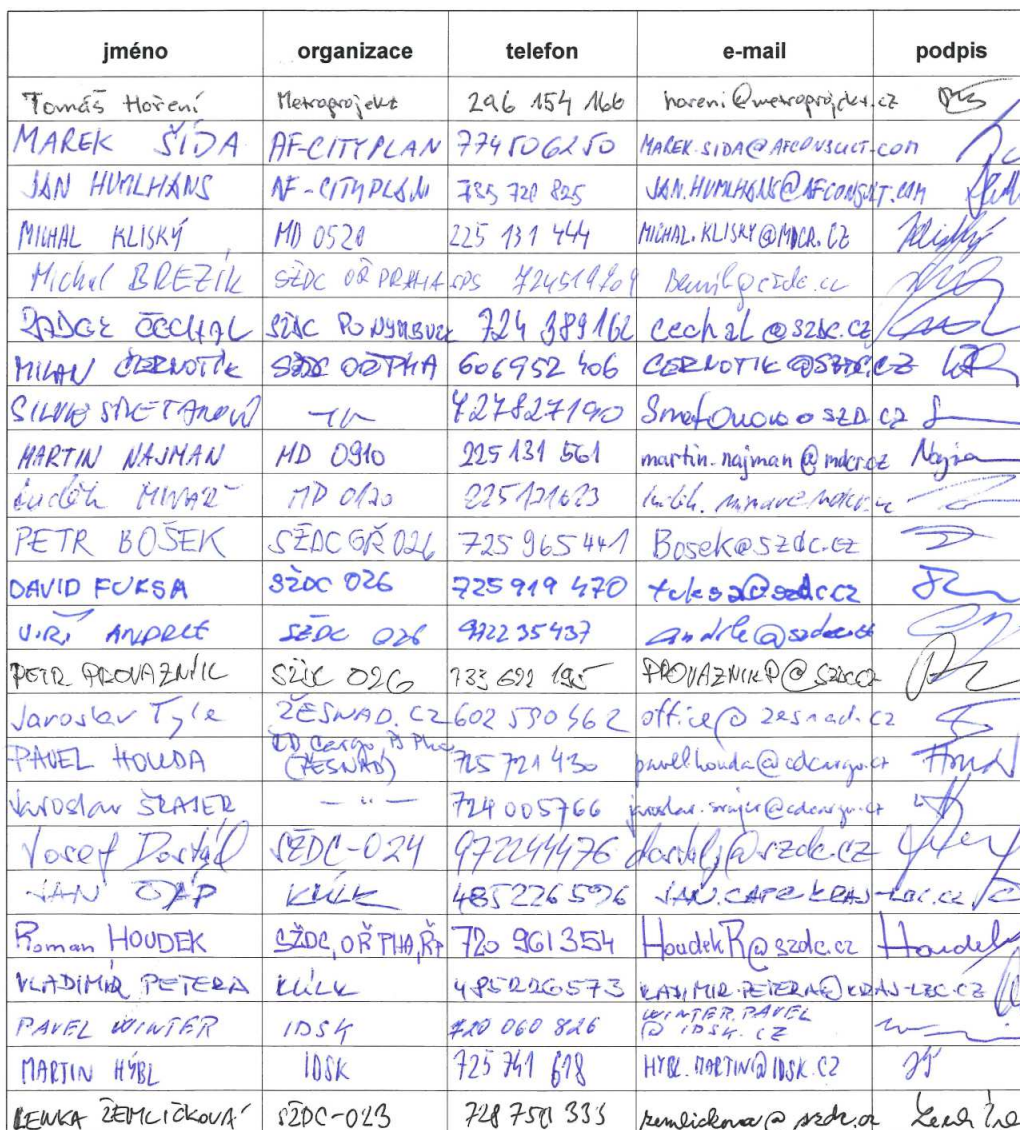 jméno organizace telefon e-mail podpis
Tomáš Hoření Metroprojekt 296 154 166 horeni@metroprojekt.cz
MAREK ŠÍDA AF-CITYPLAN 774506250 MAREK.SIDA@AFCONSULT.COM
JAN HUMLHANS AF-CITYPLAN 725 728 825 JAN.HUMLHANS@AFCONSULT.COM
MICHAL KLISKÝ MD 0520 225 131 444 MICHAL.KLISKY@MDCR.CZ
Michal BREZÍK SŽDC OŘ PRAHA
ČECHAL SŽDC PO NYMBURK 724 389162 cechal@szdc.cz
MILAN ČERNOTÍK SŽDC OŘ PHA 606952 406 CERNOTIK@SZDC.CZ
727827190
MARTIN NAJMAN MD 0910 225 131 561 martin.najman@mdcr.cz
MD 0120
PETR BOŠEK SŽDC GŘ 026 725 965 441 Bosek@szdc.cz
DAVID FUKSA SŽDC 026 725 919 470 fuksa@szdc.cz
JIŘÍ ANDRLE SŽDC 026 97223 5437 andrle@szdc.cz
PETR PROVAZNÍK SŽDC 026 733 622 195 PROVAZNIKP@szdc.cz
Jaroslav Tyle ŽESNAD.CZ 602 590 462 office@zesnad.cz
PAVEL HOUDA ČD Cargo, (ŽESNAD) 725 721 430 pavel.houda@cdcargo.cz
Jaroslav ŠRAJER — „ — 724 005766 jaroslav.srajer@cdcargo.cz
Josef Dostál SŽDC-024 972244476 dostalj@szdc.cz
JAN ČÁP KÚLK 485226596 JAN.CAP@KRAJ-LBC.CZ
Roman HOUDEK SŽDC, OŘ PHA, 720 961354 HoudekR@szdc.cz Houdek
VLADIMÍR PETERA KÚLK 485226573 VLADIMIR.PETERA@KRAJ-LBC.CZ
PAVEL WINTER IDSK 720 060 826 WINTER.PAVEL
@IDSK.CZ
MARTIN HÝBL IDSK 725 741 618 HYBL.MARTIN@IDSK.CZ
LENKA ŽEMLIČKOVÁ SŽDC-023 728 750 333 zemlickova@szdc.cz